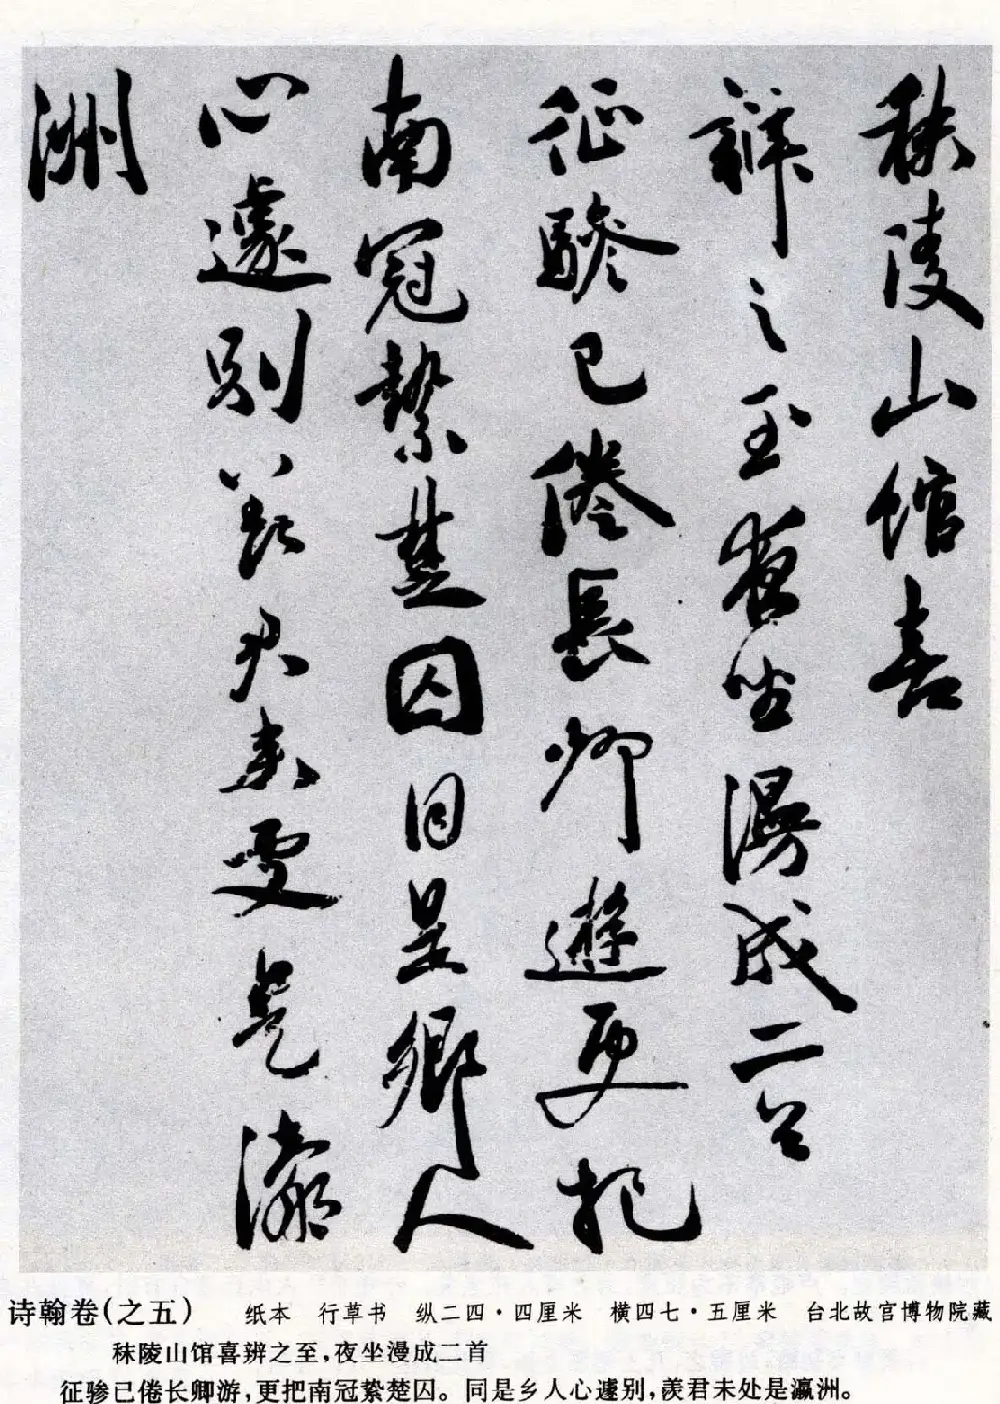 秣陵山館喜
辨之至夜坐漫成二首
征驂已倦長卿遊更把
南冠縶楚囚同是鄉人
心遽別羨君未處是瀛
洲
诗翰卷(之五) 纸本 行草书 纵二四·四厘米 横四七·五厘米 台北故宫博物院藏
秣陵山馆喜辨之至,夜坐漫成二首
征骖已倦长卿游,更把南冠絷楚囚。同是乡人心遽别,羡君未处是瀛洲。